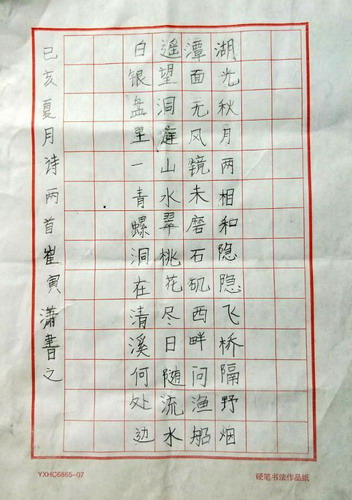 湖光秋月两相和隐隐飞桥隔野烟
潭面无风镜未磨石矶西畔问渔船
遥望洞庭山水翠桃花尽日随流水
白银盘里一青螺洞在清溪何处边
己亥夏月诗两首崔寅潇書之
YXHC6865-07
硬笔书法作品纸